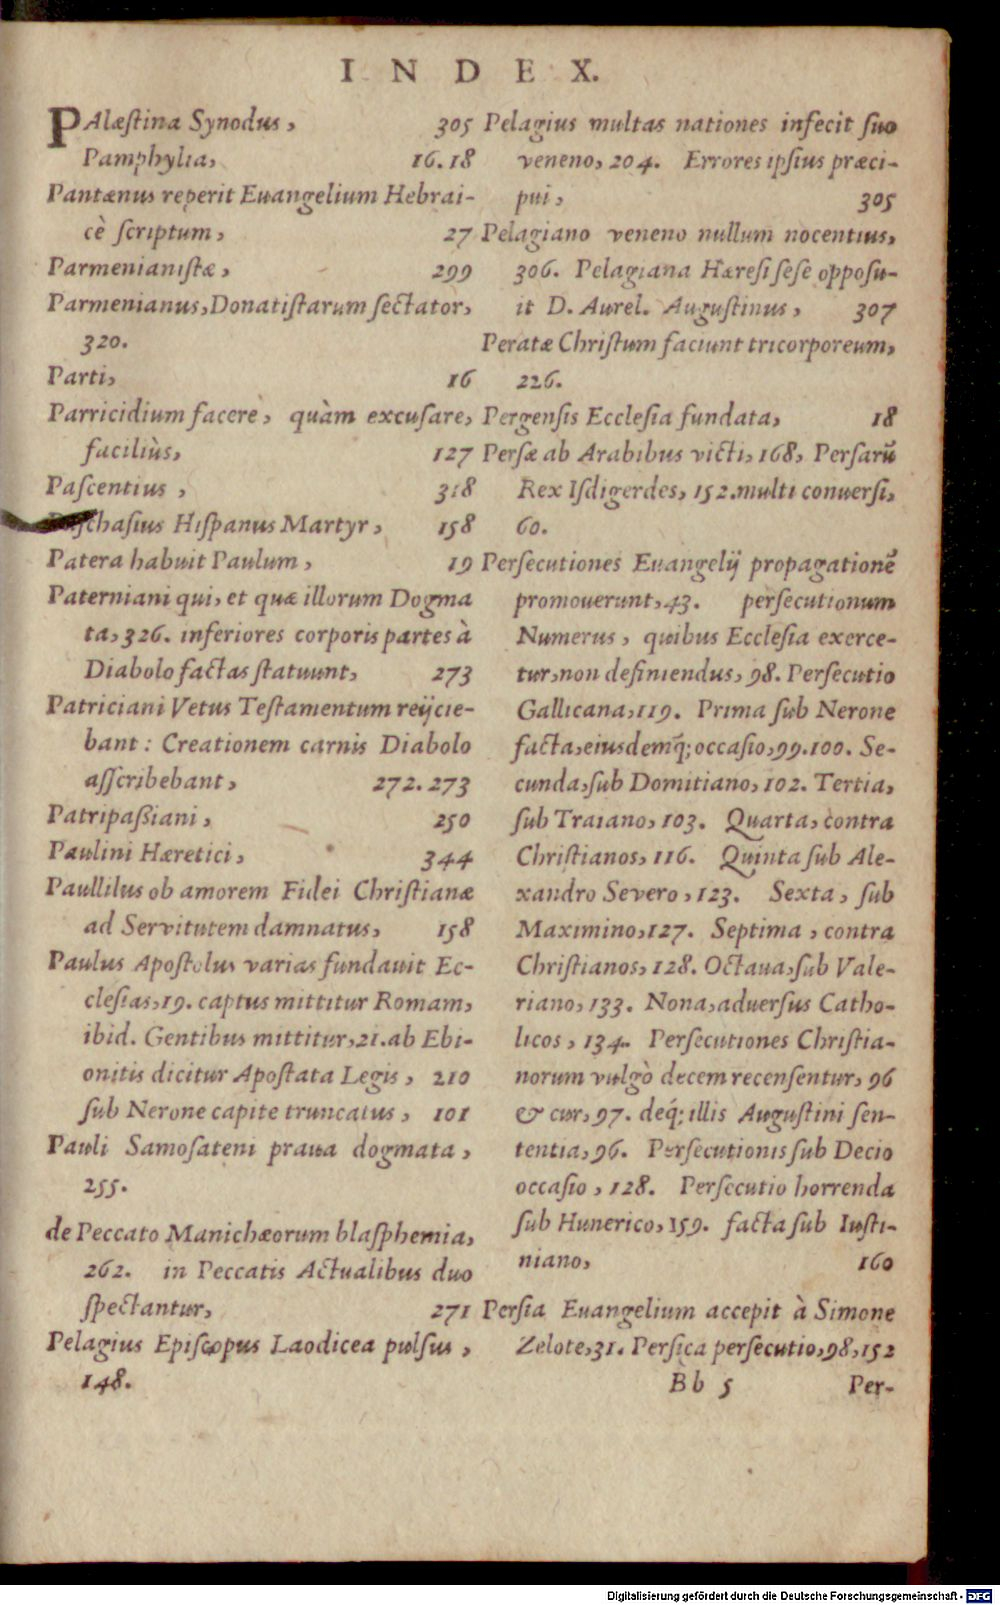 INDEX.
PAlæſtina Synodus, 305
Pamphylia, 16.18
Pantænus reperit Euangelium Hebrai-
cè ſcriptum, 27
Parmenianiſtæ, 299
Parmenianus, Donatiſtarum ſectator,
320.
Parti, 16
Parricidium facere, quàm excuſare,
faciliùs, 127
Paſcentius, 318
Paſchaſius Hiſpanus Martyr, 158
Patera habuit Paulum, 19
Paterniani qui, et quæ illorum Dogma
ta, 326. inferiores corporis partes à
Diabolo factas ſtatuunt, 273
Patriciani Vetus Teſtamentum reijcie-
bant: Creationem carnis Diabolo
aſſcribebant, 272.273
Patripaßiani, 250
Paulini Hæretici, 344
Paullilus ob amorem Fidei Chriſtianæ
ad Servitutem damnatus, 158
Paulus Apoſtolus varias fundauit Ec-
cleſias, 19. captus mittitur Romam,
ibid. Gentibus mittitur, 21. ab Ebi-
onitis dicitur Apoſtata Legis, 210
ſub Nerone capite truncatus, 101
Pauli Samoſateni praua dogmata,
255.
de Peccato Manichæorum blaſphemia,
262. in Peccatis Actualibus duo
ſpectantur, 271
Pelagius Epiſcopus Laodicea pulſus,
148.
Pelagius multas nationes infecit ſuo
veneno, 204. Errores ipſius præci-
pui, 305
Pelagiano veneno nullum nocentius,
306. Pelagiana Hæreſi ſeſe oppoſu-
it D. Aurel. Auguſtinus, 307
Peratæ Chriſtum faciunt tricorporeum,
226.
Pergenſis Eccleſia fundata, 18
Perſæ ab Arabibus victi, 168, Perſarũ
Rex Iſdigerdes, 152. multi conuerſi,
60.
Perſecutiones Euangelij propagationẽ
promouerunt, 43. perſecutionum
Numerus, quibus Eccleſia exerce-
tur, non definiendus, 98. Perſecutio
Gallicana, 119. Prima ſub Nerone
facta, eiusdemq́; occaſio, 99.100. Se-
cunda, ſub Domitiano, 102. Tertia,
ſub Traiano, 103. Quarta, contra
Chriſtianos, 116. Quinta ſub Ale-
xandro Severo, 123. Sexta, ſub
Maximino, 127. Septima, contra
Chriſtianos, 128. Octaua, ſub Vale-
riano, 133. Nona, aduerſus Catho-
licos, 134. Perſecutiones Chriſtia-
norum vulgò decem recenſentur, 96
& cur, 97. deq́; illis Auguſtini ſen-
tentia, 96. Perſecutionis ſub Decio
occaſio, 128. Perſecutio horrenda
ſub Hunerico, 159. facta ſub Iuſti-
niano, 160
Perſia Euangelium accepit à Simone
Zelote, 31. Perſica perſecutio, 98, 152
Bb 5 Per-
Digitalisierung gefördert durch die Deutsche Forschungsgemeinschaft - DFG